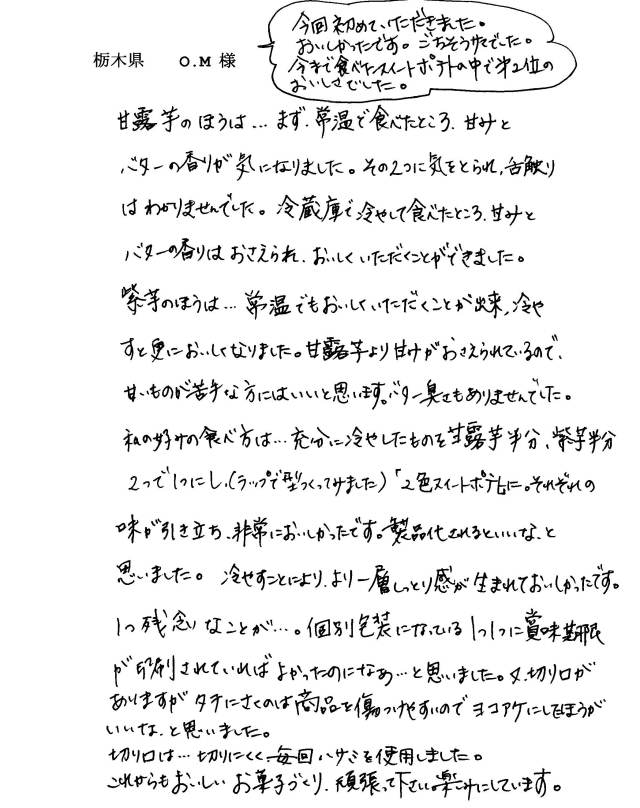 栃木県 O.M 様
今回初めていただきました。
おいしかったです。ごちそうサマでした。
今まで食べたスイートポテトの中で第2位の
おいしさでした。
甘露芋のほうは…まず、常温で食べたところ、甘みと
バターの香りが気になりました。その2つに気をとられ、舌触り
はわかりませんでした。冷蔵庫で冷やして食べたところ、甘みと
バターの香りはおさえられ、おいしくいただくことができました。
紫芋のほうは…常温でもおいしくいただくことが出来、冷や
すと更においしくなりました。甘露芋より甘けがおさえられているので、
甘いものが苦手な方にはいいと思います。バター臭さもありませんでした。
私の好みの食べ方は…充分に冷やしたものを甘露芋半分、紫芋半分
2つで1つにし、(ラップで型つくってみました)「2色スイートポテト」に。それぞれの
味が引き立ち、非常においしかったです。製品化されるといいな、と
思いました。冷やすことにより、より一層しっとり感が生まれておいしかったです。
1つ残念なことが…。個別包装になっている1つ1つに賞味期限
が印刷されていればよかったのになぁ…と思いました。又、切り口が
ありますがタテにさくのは商品を傷つけやすいのでヨコアケにしたほうが
いいな、と思いました。
切り口は…切りにくく、毎回ハサミを使用しました。
これからもおいしいお菓子づくり、頑張って下さい。楽しみにしています。